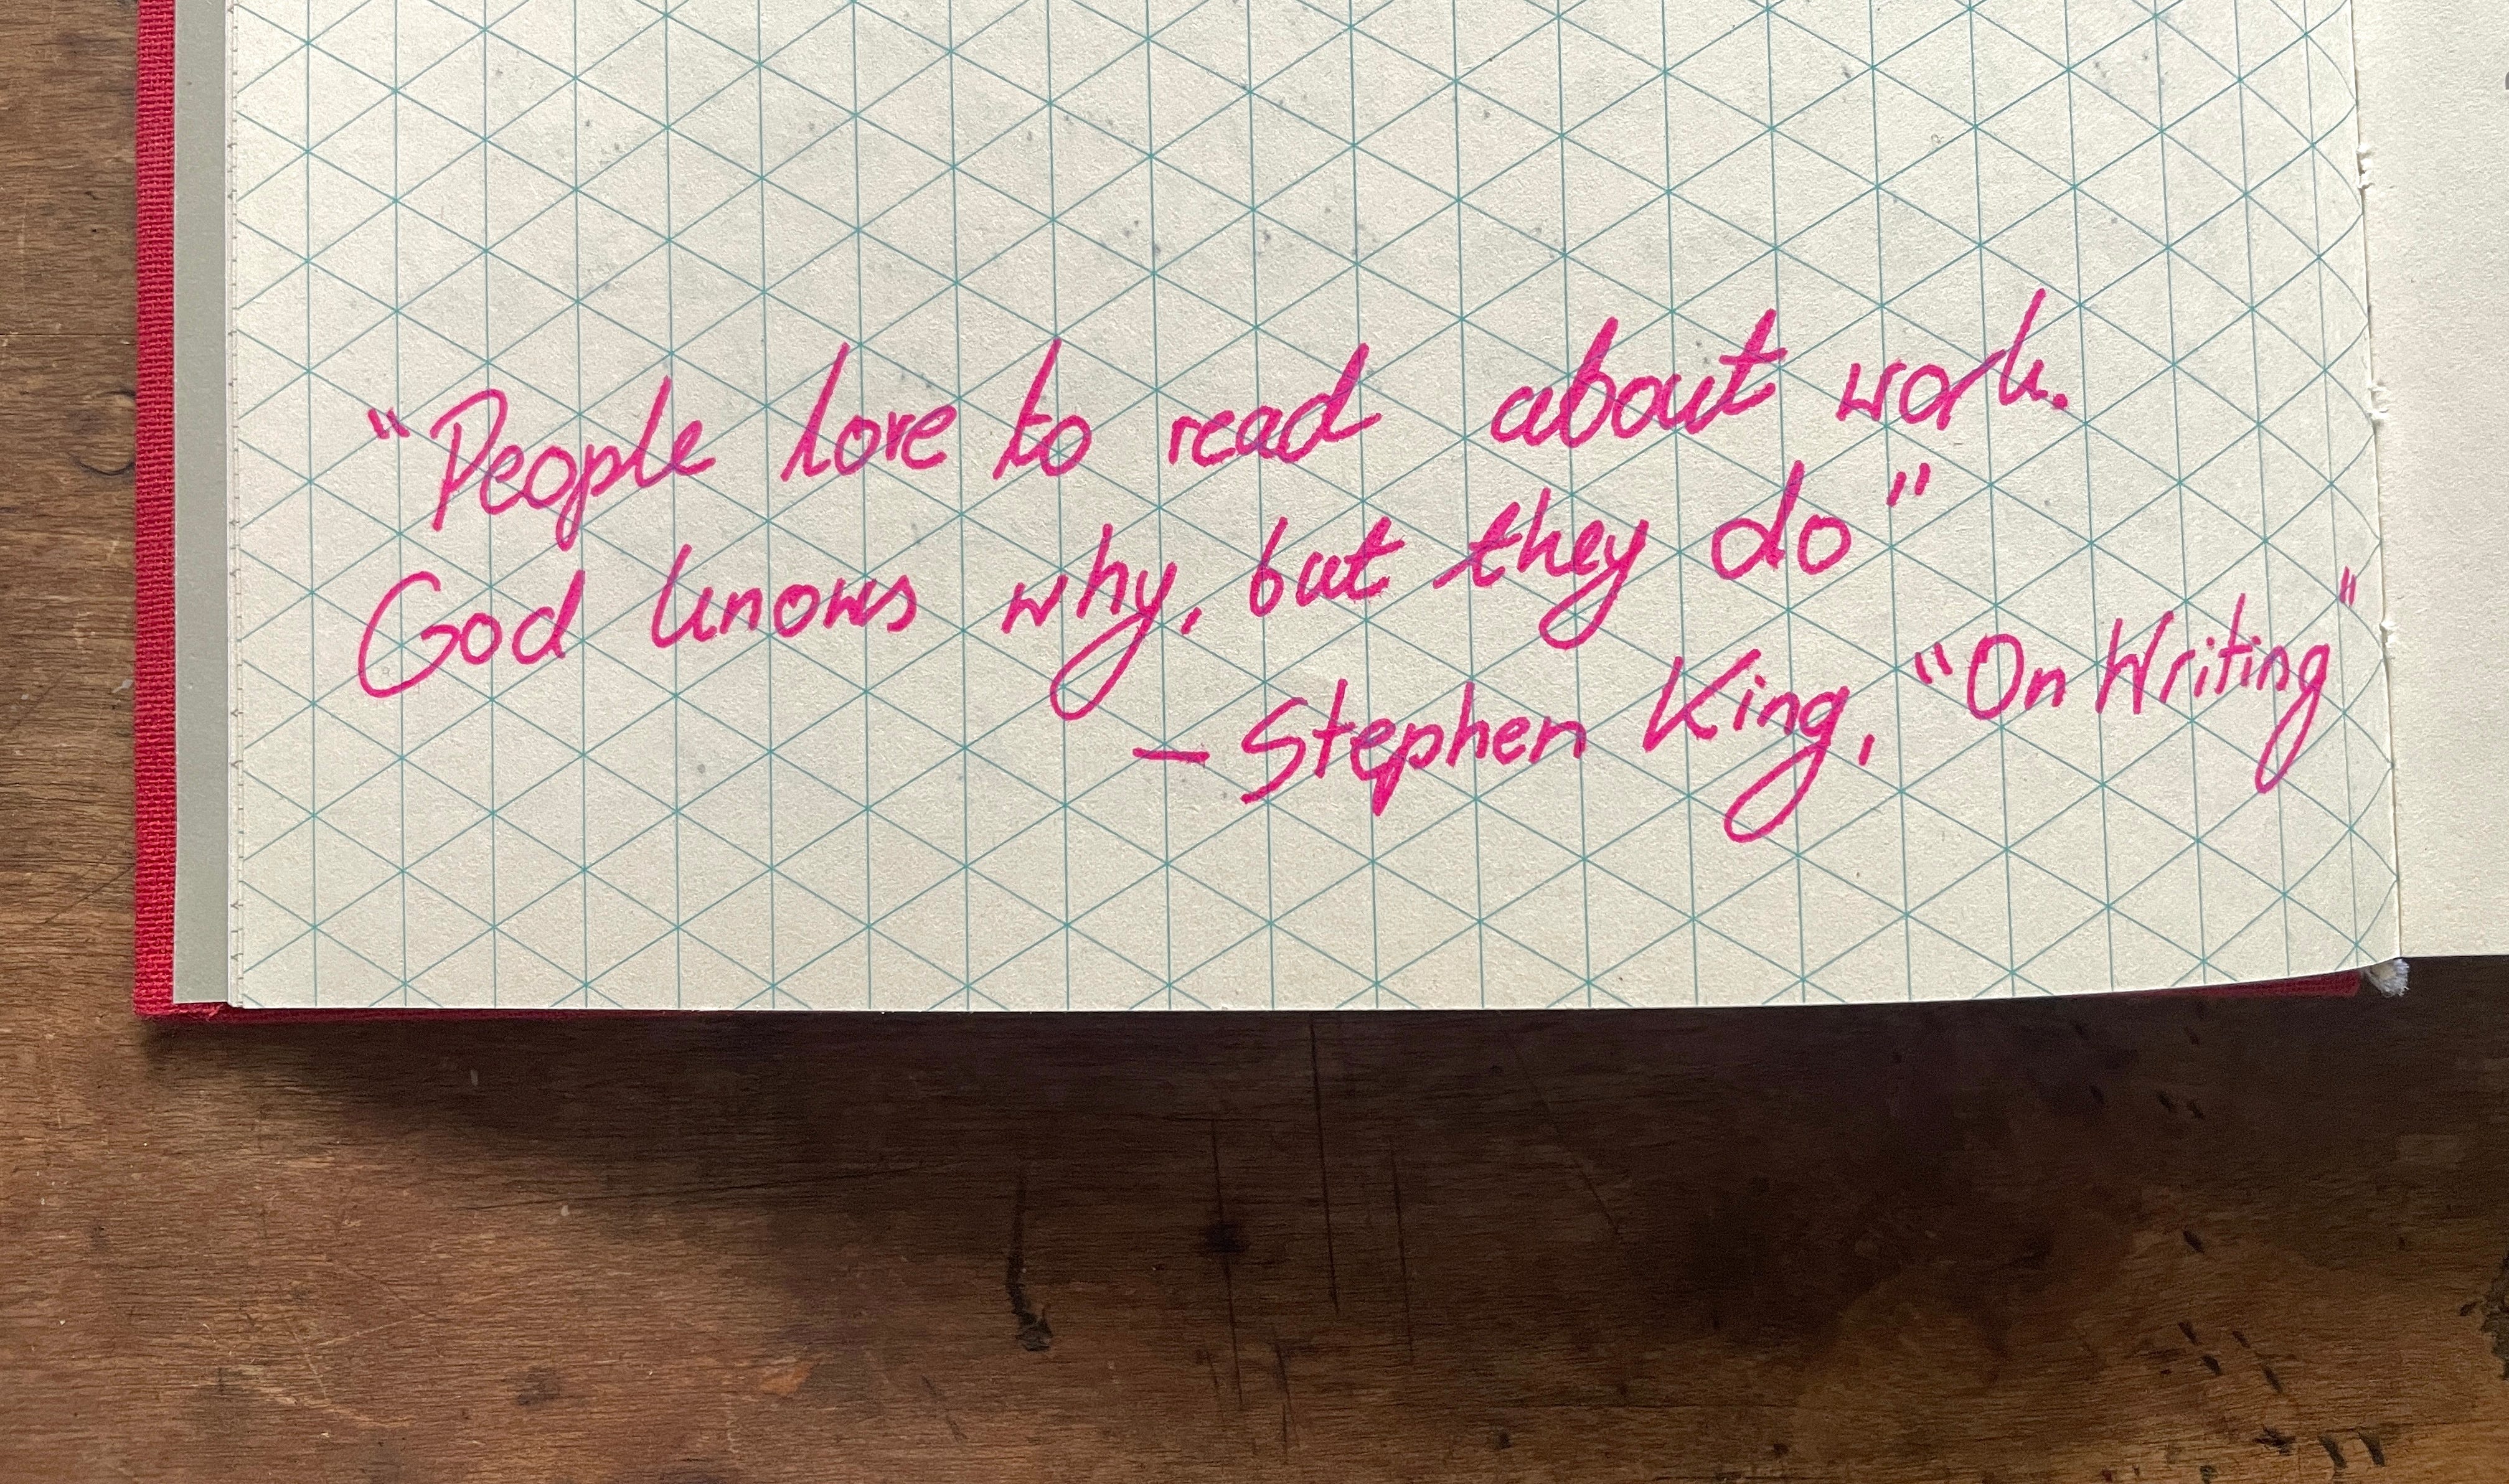 “People love to read about work.
God knows why, but they do”
– Stephen King, “On Writing”